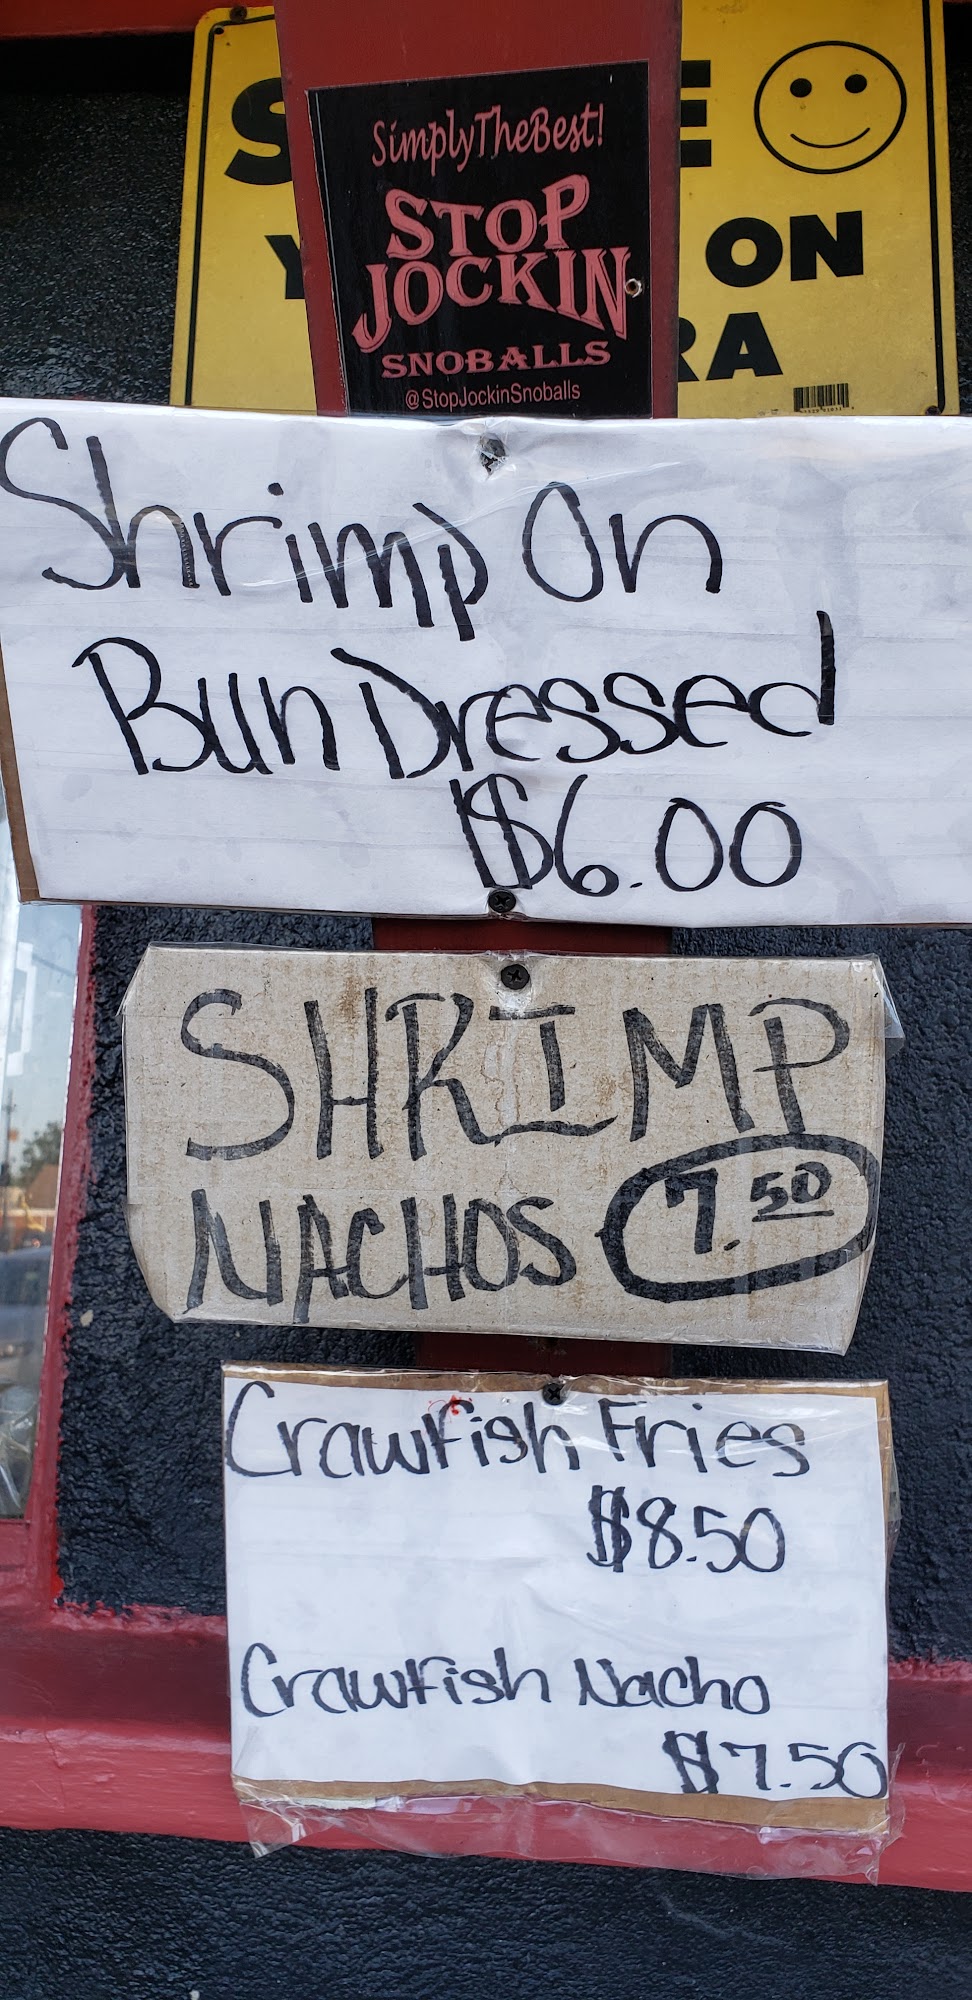 SimplyTheBest!
STOP
JOCKIN
SNOBALLS
@StopJockinSnoballs
ON
Shrimp On
Bun Dressed
$6.00
SHRIMP
NACHOS 7.50
Crawfish Fries
$8.50
Crawfish Nacho
$7.50